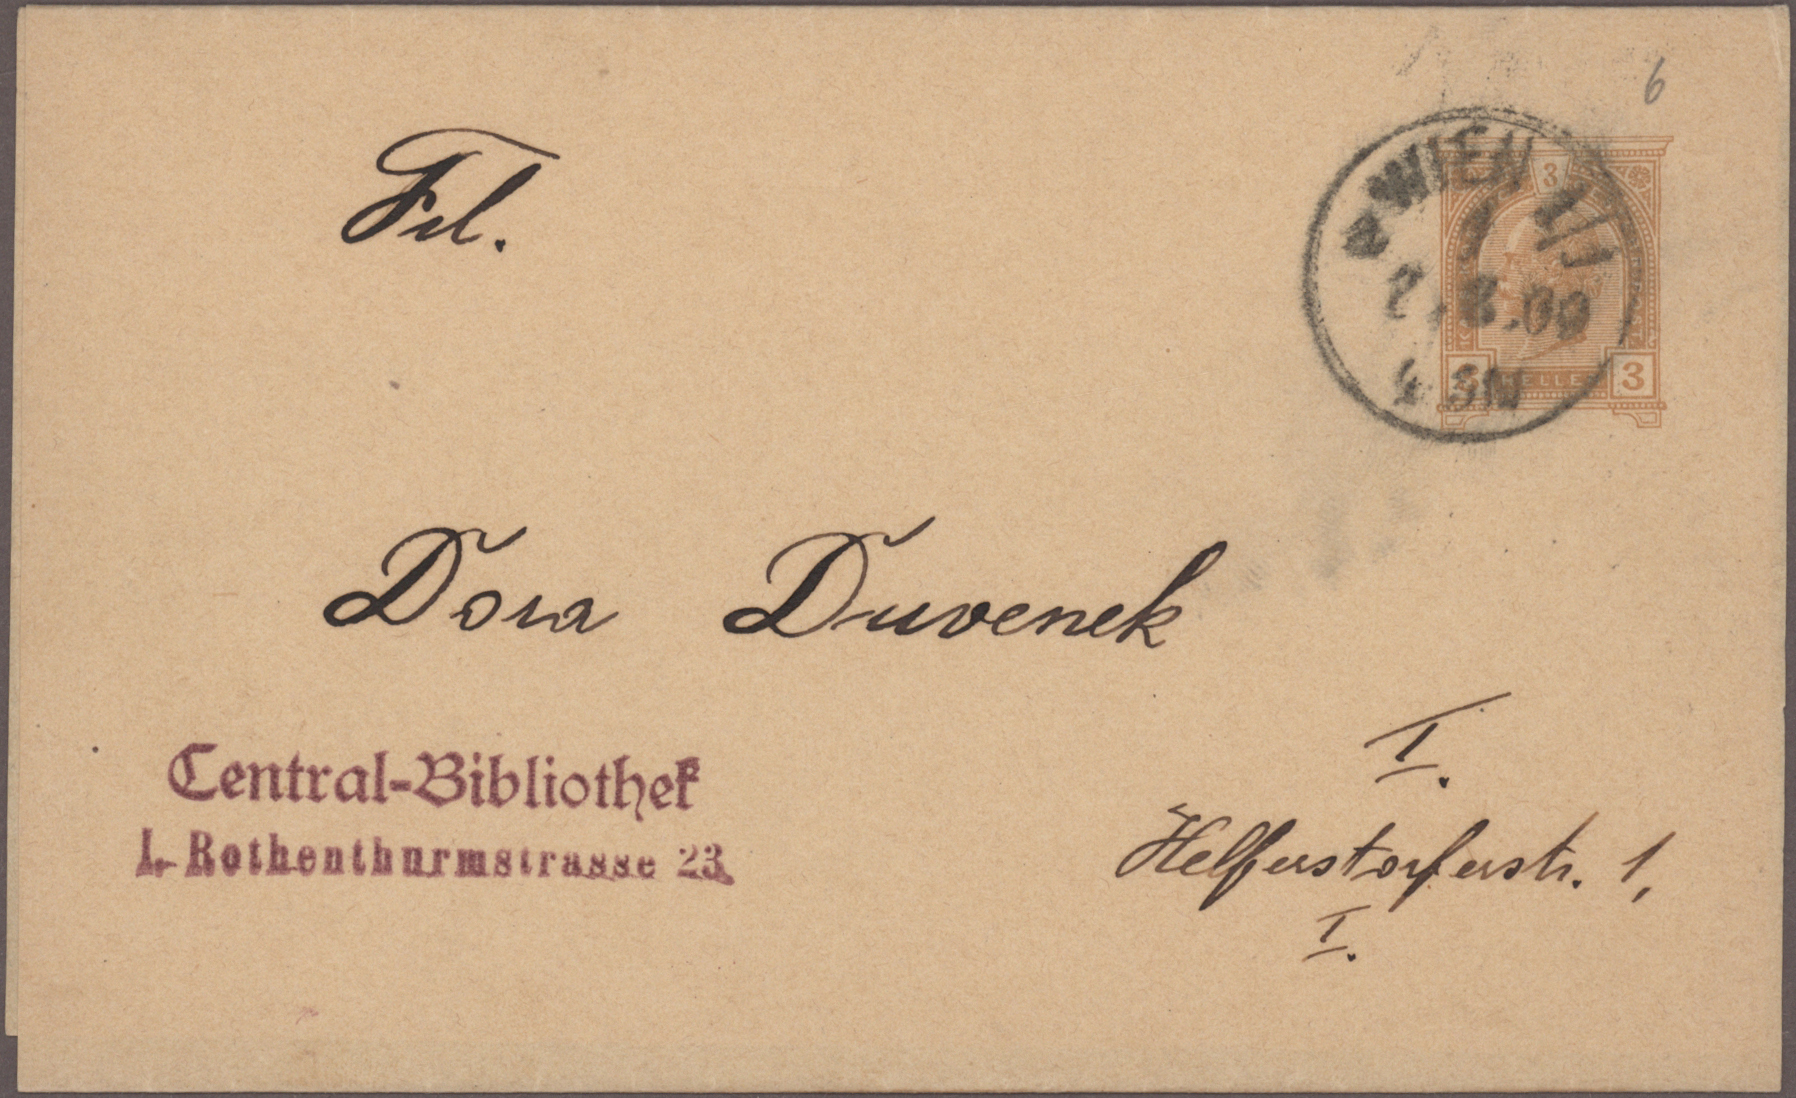 6
WIEN 1/1
3
3 HELLER 3
Frl.
Dora Duvenek
I.
Helferstorferstr. 1,
I.
Central-Bibliothek
I. Rothenthurmstrasse 23.